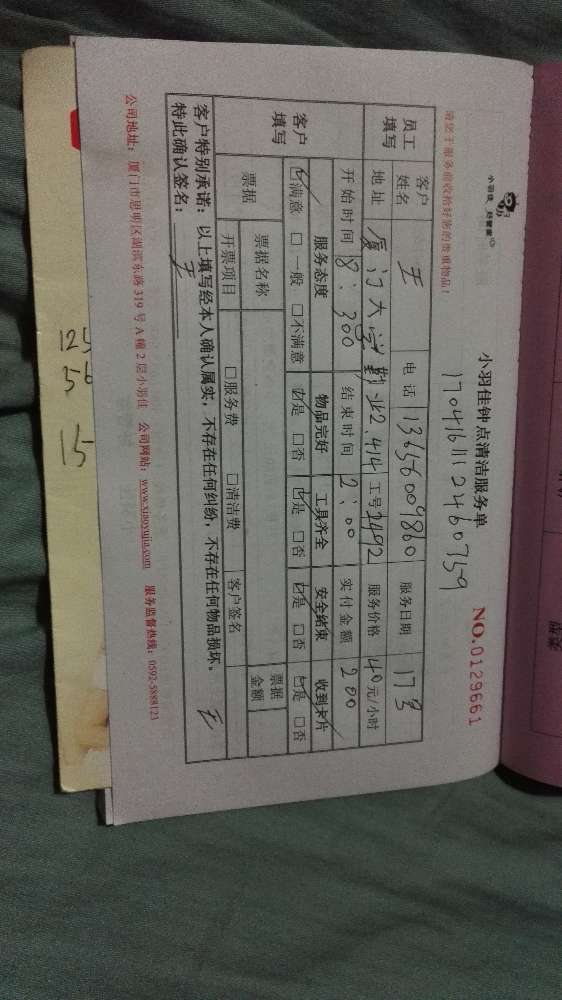 请您于服务前收拾好您的贵重物品！
小羽佳 好管家
小羽佳钟点清洁服务单
NO.0129661
170416112460759
员工填写 客户姓名 王 电话 13656009860 服务日期
地址 厦门大学勤业2.414 工号 服务价格 40元/小时
开始时间 结束时间 2:00 实付金额 200
客户填写 服务态度 物品完好 工具齐全 安全结束 收到卡片
☑满意 □一般 □不满意 ☑是 □否 ☑是 □否 ☑是 □否 ☑是 □否
票据 票据名称 票据金额
开票项目 □服务费 □清洁费 客户签名
客户特别承诺：以上填写经本人确认属实，不存在任何纠纷，不存在任何物品损坏。
特此确认签名： 王
公司地址：厦门市思明区湖滨东路319号A幢2层小羽佳 公司网站：www.xiaoyujia.com 服务监督热线：0592-5888123
56
15